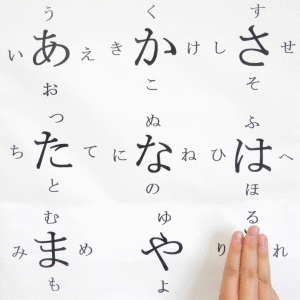 う く す
い あ え き か け し さ せ
お こ そ
つ ぬ ふ
ち た て に な ね ひ は へ
と の ほ
む ゆ る
み ま め や り れ
も よ